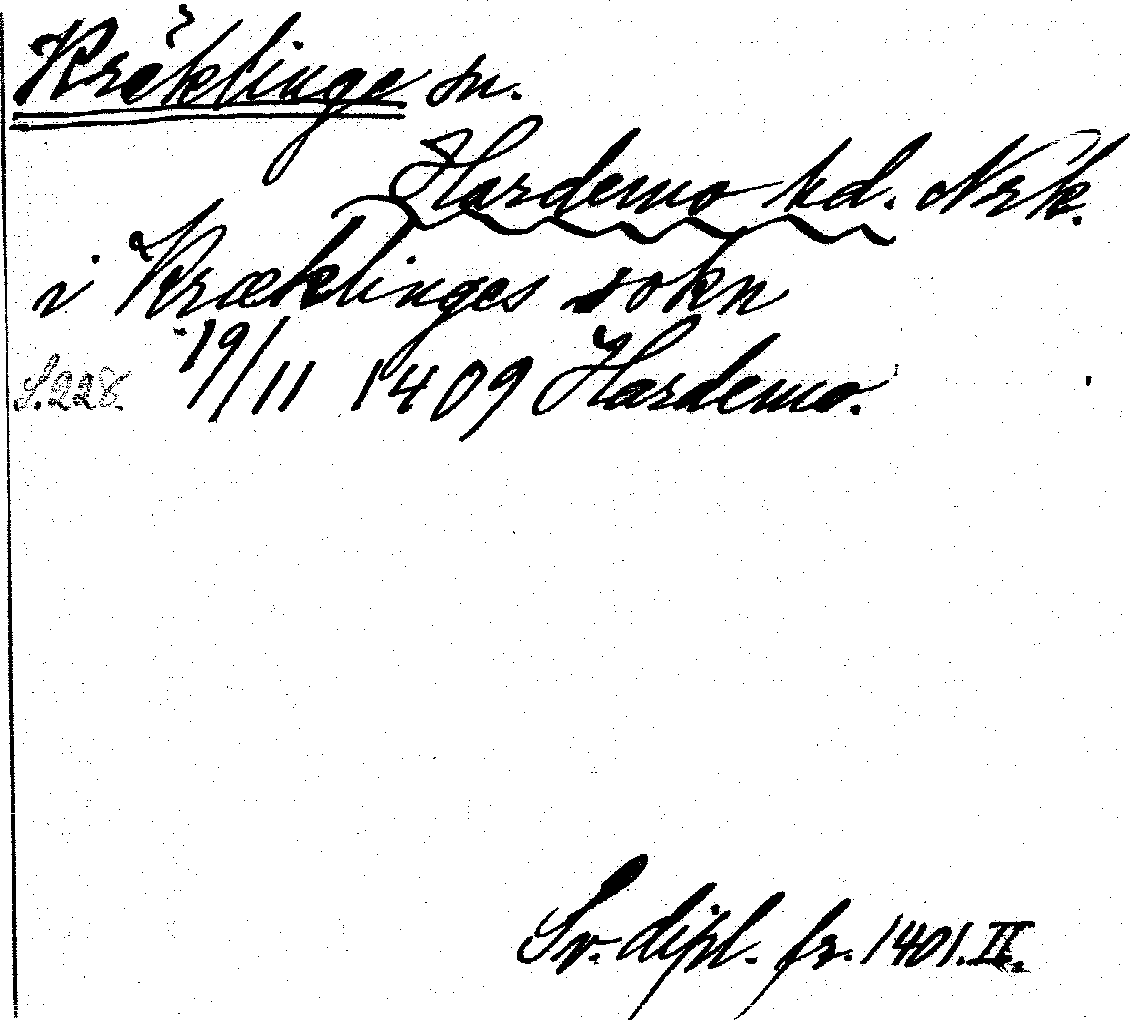 Kräklinge sn.
Hardemo hd. Nrk.
i Kræklinges sokn
S. 228. 19/11 1409 Hardemo.
Sv. dipl. fr. 1401. II.